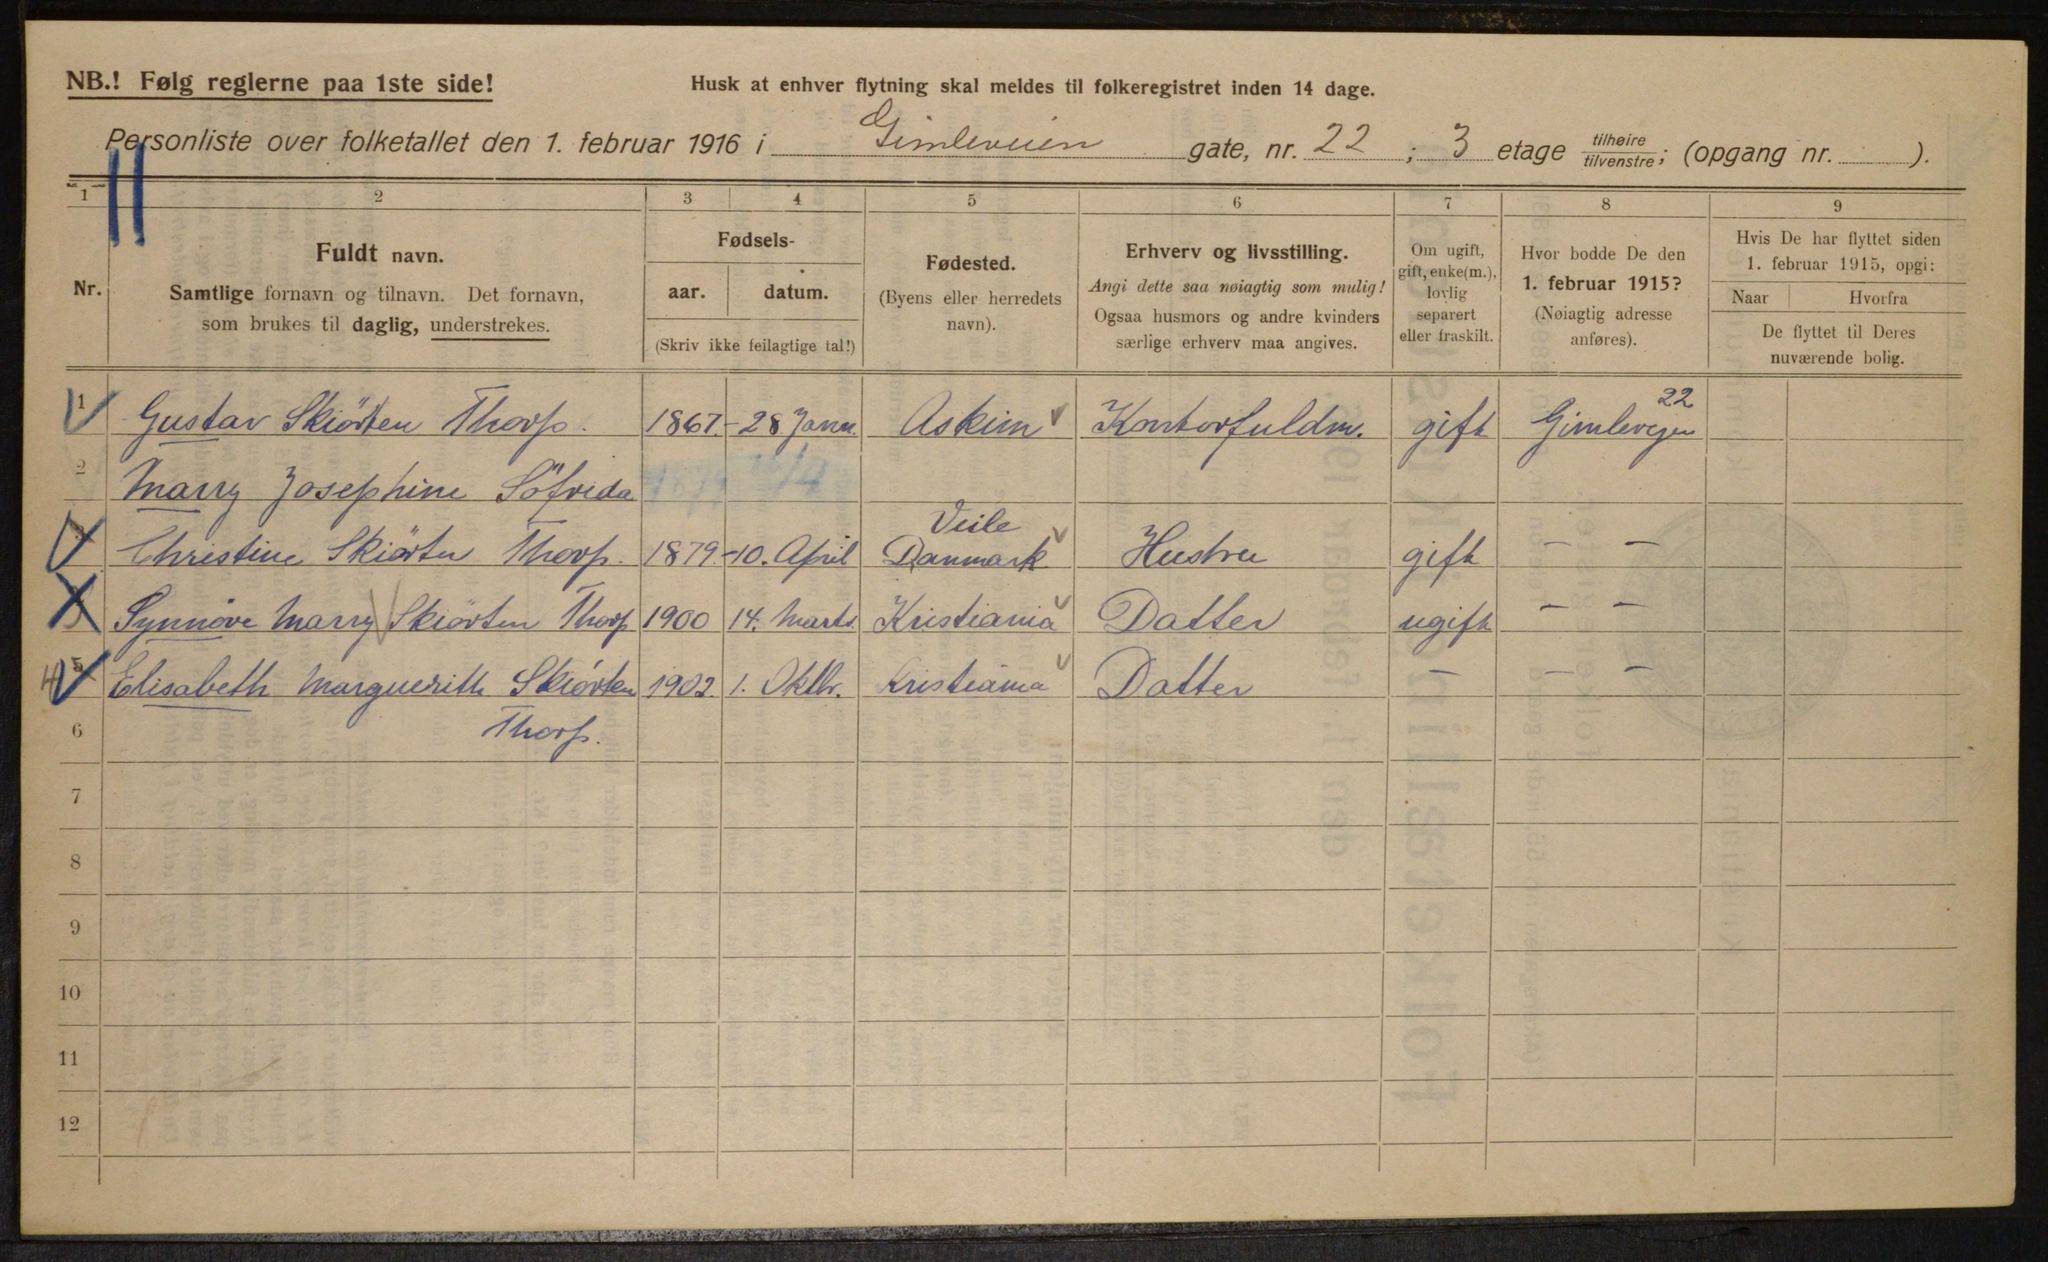 NB.! Følg reglerne paa 1ste side!
Husk at enhver flytning skal meldes til folkeregistret inden 14 dage.
Personliste over folketallet den 1. februar 1916 i Gimleveien gate, nr. 22 ; 3 etage tilhøire/tilvenstre; (opgang nr. ).
1 2 3 4 5 6 7 8 9
Nr.
Fuldt navn.
Samtlige fornavn og tilnavn. Det fornavn,
som brukes til daglig, understrekes.
Fødsels-
aar. datum.
(Skriv ikke feilagtige tal!)
Fødested.
(Byens eller herredets
navn).
Erhverv og livsstilling.
Angi dette saa nøiagtig som mulig!
Ogsaa husmors og andre kvinders
særlige erhverv maa angives.
Om ugift,
gift, enke(m.),
lovlig
separert
eller fraskilt.
Hvor bodde De den
1. februar 1915?
(Nøiagtig adresse
anføres).
Hvis De har flyttet siden
1. februar 1915, opgi:
Naar Hvorfra
De flyttet til Deres
nuværende bolig.
1 Gustav Skiörten Thorp. 1867. - 28 Janu. Askim Kontorfuldm. gift Gimlevejen 22
2 Marry Josephine Söfrida
Christine Skiörten Thorp. 1879. - 10. April Veile Danmark Hustru gift — —
Synnöve Marry Skiörten Thorp 1900 14. Marts Kristiania Datter ugift — —
4 5 Elisabeth Marguerith Skiörten 1902 1. Oktbr. Kristiania Datter — — —
6 Thorp.
7
8
9
10
11
12